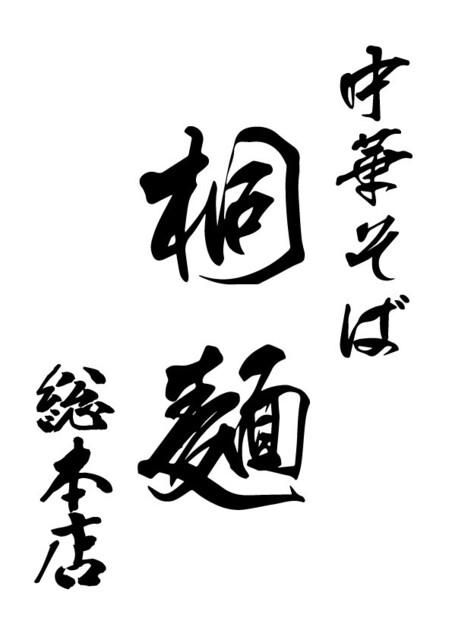 中華そば
桐麺
総本店